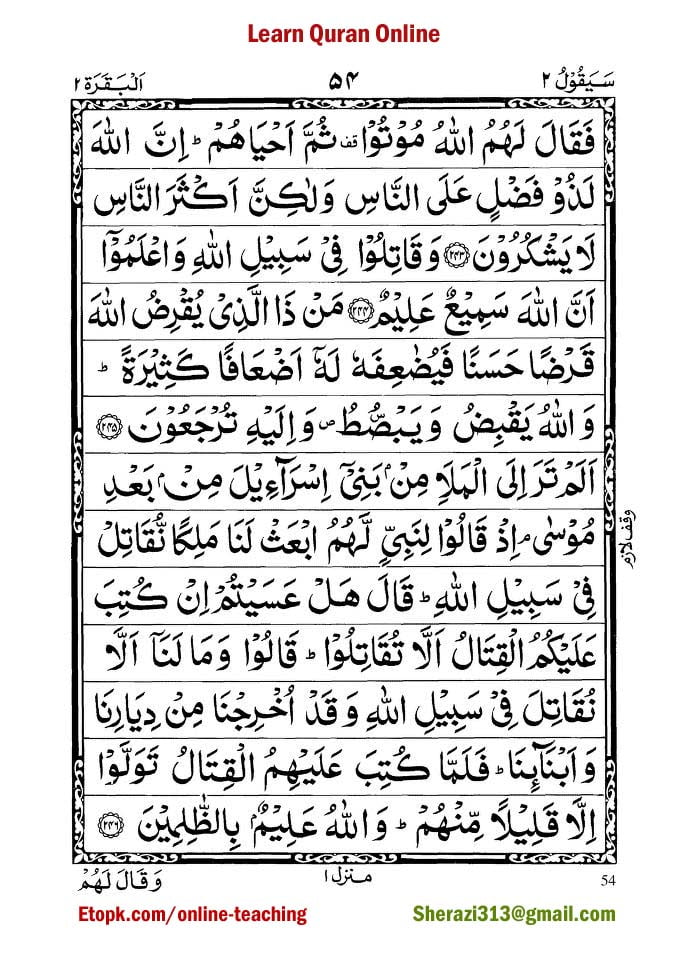 Learn Quran Online
سَيَقُوْلُ ٢ ۵۴ اَلْبَقَرَة ٢
فَقَالَ لَهُمُ اللّٰهُ مُوْتُوْا قف ثُمَّ اَحْيَاهُمْ ؕ اِنَّ اللّٰهَ
لَذُوْ فَضْلٍ عَلَى النَّاسِ وَلٰكِنَّ اَكْثَرَ النَّاسِ
لَا يَشْكُرُوْنَ ﴿٢٤٣﴾ وَقَاتِلُوْا فِىْ سَبِيْلِ اللّٰهِ وَاعْلَمُوْۤا
اَنَّ اللّٰهَ سَمِيْعٌ عَلِيْمٌ ﴿٢٤٤﴾ مَنْ ذَا الَّذِىْ يُقْرِضُ اللّٰهَ
قَرْضًا حَسَنًا فَيُضٰعِفَهٗ لَهٗۤ اَضْعَافًا كَثِيْرَةً ؕ
وَاللّٰهُ يَقْبِضُ وَيَبْصُۜطُ ص وَاِلَيْهِ تُرْجَعُوْنَ ﴿٢٤٥﴾
اَلَمْ تَرَ اِلَى الْمَلَاِ مِنْۢ بَنِىْۤ اِسْرَآءِيْلَ مِنْۢ بَعْدِ
مُوْسٰى ۘ اِذْ قَالُوْا لِنَبِىٍّ لَّهُمُ ابْعَثْ لَنَا مَلِكًا نُّقَاتِلْ
وقف لازم
فِىْ سَبِيْلِ اللّٰهِ ؕ قَالَ هَلْ عَسَيْتُمْ اِنْ كُتِبَ
عَلَيْكُمُ الْقِتَالُ اَلَّا تُقَاتِلُوْا ؕ قَالُوْا وَمَا لَنَاۤ اَلَّا
نُقَاتِلَ فِىْ سَبِيْلِ اللّٰهِ وَقَدْ اُخْرِجْنَا مِنْ دِيَارِنَا
وَاَبْنَآئِنَا ؕ فَلَمَّا كُتِبَ عَلَيْهِمُ الْقِتَالُ تَوَلَّوْا
اِلَّا قَلِيْلًا مِّنْهُمْ ؕ وَاللّٰهُ عَلِيْمٌۢ بِالظّٰلِمِيْنَ ﴿٢٤٦﴾
54 منزل ١ وَقَالَ لَهُمْ
Etopk.com/online-teaching Sherazi313@gmail.com